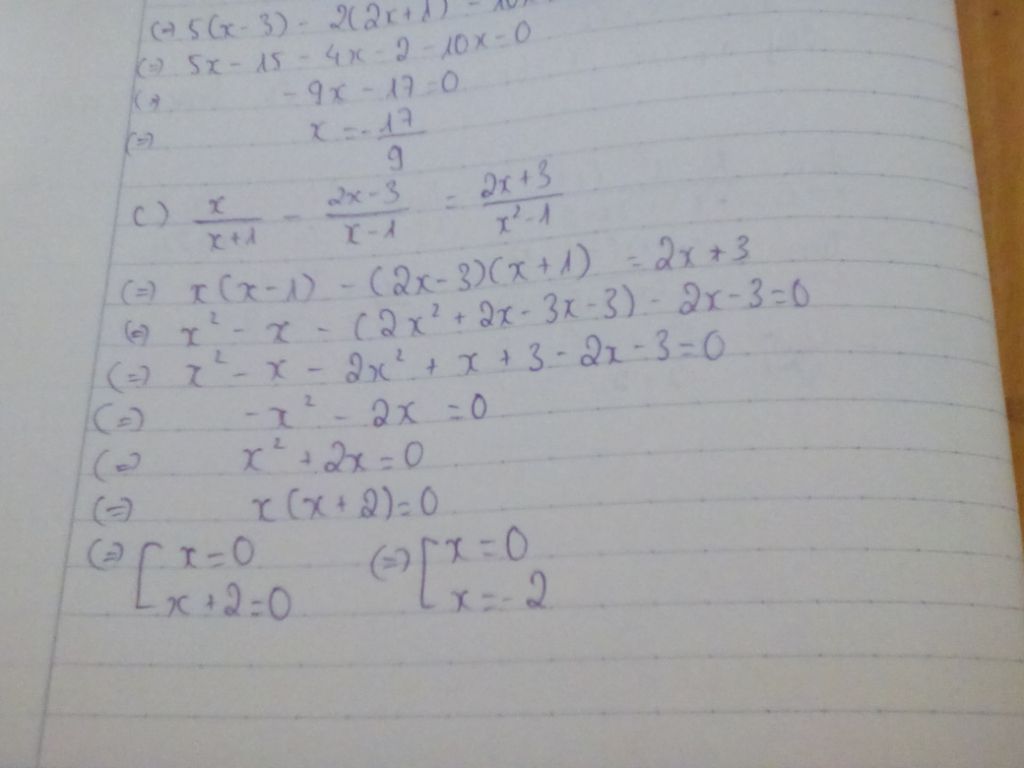 (=) 5(x-3) - 2(2x+1) - 10x
(=) 5x - 15 - 4x - 2 - 10x = 0
(=) - 9x - 17 = 0
(=) x = -17/9
c) x/(x+1) - (2x-3)/(x-1) = (2x+3)/(x²-1)
(=) x(x-1) - (2x-3)(x+1) = 2x+3
(=) x² - x - (2x² + 2x - 3x - 3) - 2x - 3 = 0
(=) x² - x - 2x² + x + 3 - 2x - 3 = 0
(=) -x² - 2x = 0
(=) x² + 2x = 0
(=) x(x+2) = 0
(=) [ x = 0 (=) [ x = 0
x + 2 = 0 x = -2